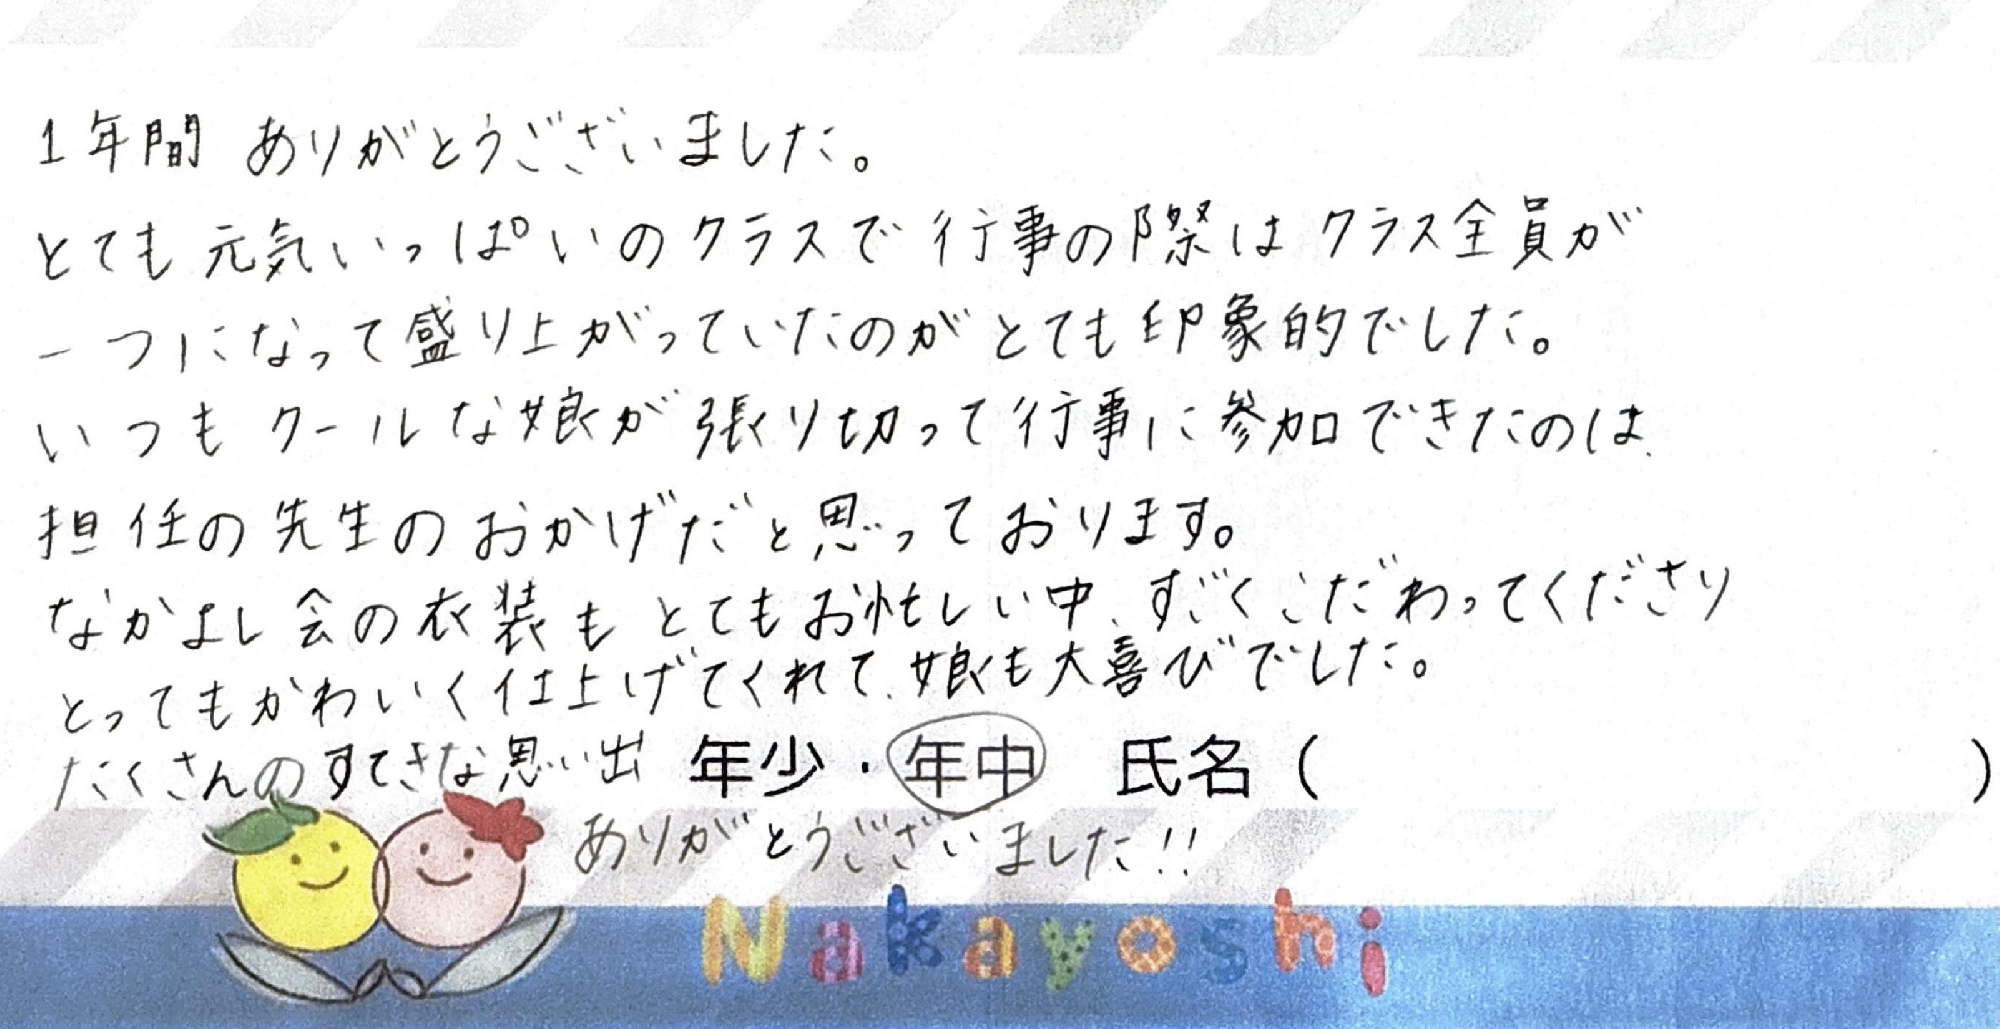 1年間 ありがとうございました。
とても元気いっぱいのクラスで行事の際はクラス全員が
一つになって盛り上がっていたのがとても印象的でした。
いつもクールな娘が張り切って行事に参加できたのは、
担任の先生のおかげだと思っております。
なかよし会の衣装もとてもお忙しい中、すごくこだわってくださり
とってもかわいく仕上げてくれて、娘も大喜びでした。
たくさんのすてきな思い出 年少・年中 氏名( )
ありがとうございました!!
Nakayoshi